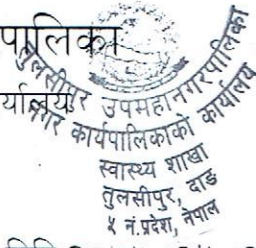 पालिका
र्यालय
तुलसीपुर उपमहानगरपालिका
नगर कार्यपालिकाको कार्यालय
स्वास्थ्य शाखा
तुलसीपुर, दाङ
५ नं.प्रदेश, नेपाल